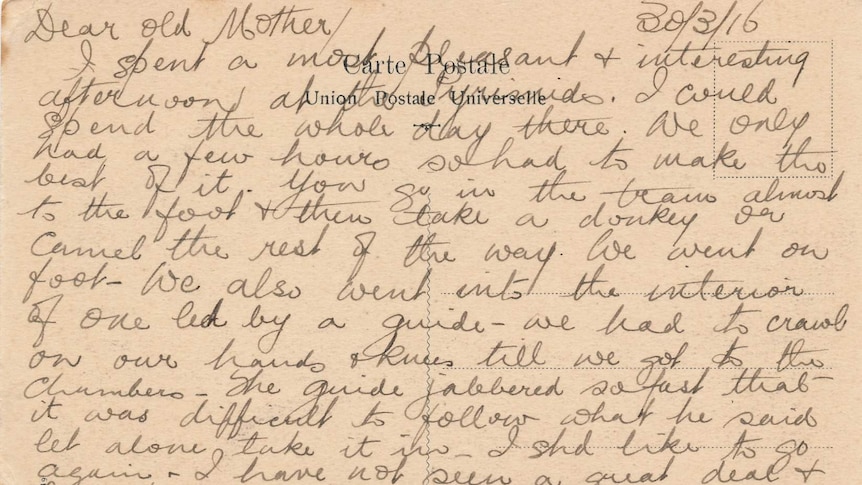 Dear old Mother/ 30/3/16
I spent a most pleasant & interesting
Carte Postale
afternoon at the Pyramids. I could
Union Postale Universelle
spend the whole day there. We only
had a few hours so had to make the
best of it. You go in the tram almost
to the foot & then take a donkey or
camel the rest of the way. We went on
foot - We also went into the interior
of one led by a guide - we had to crawl
on our hands & knees till we got to the
chambers - The guide jabbered so fast that
it was difficult to follow what he said
let alone take it in - I shd like to go
again - I have not seen a great deal &